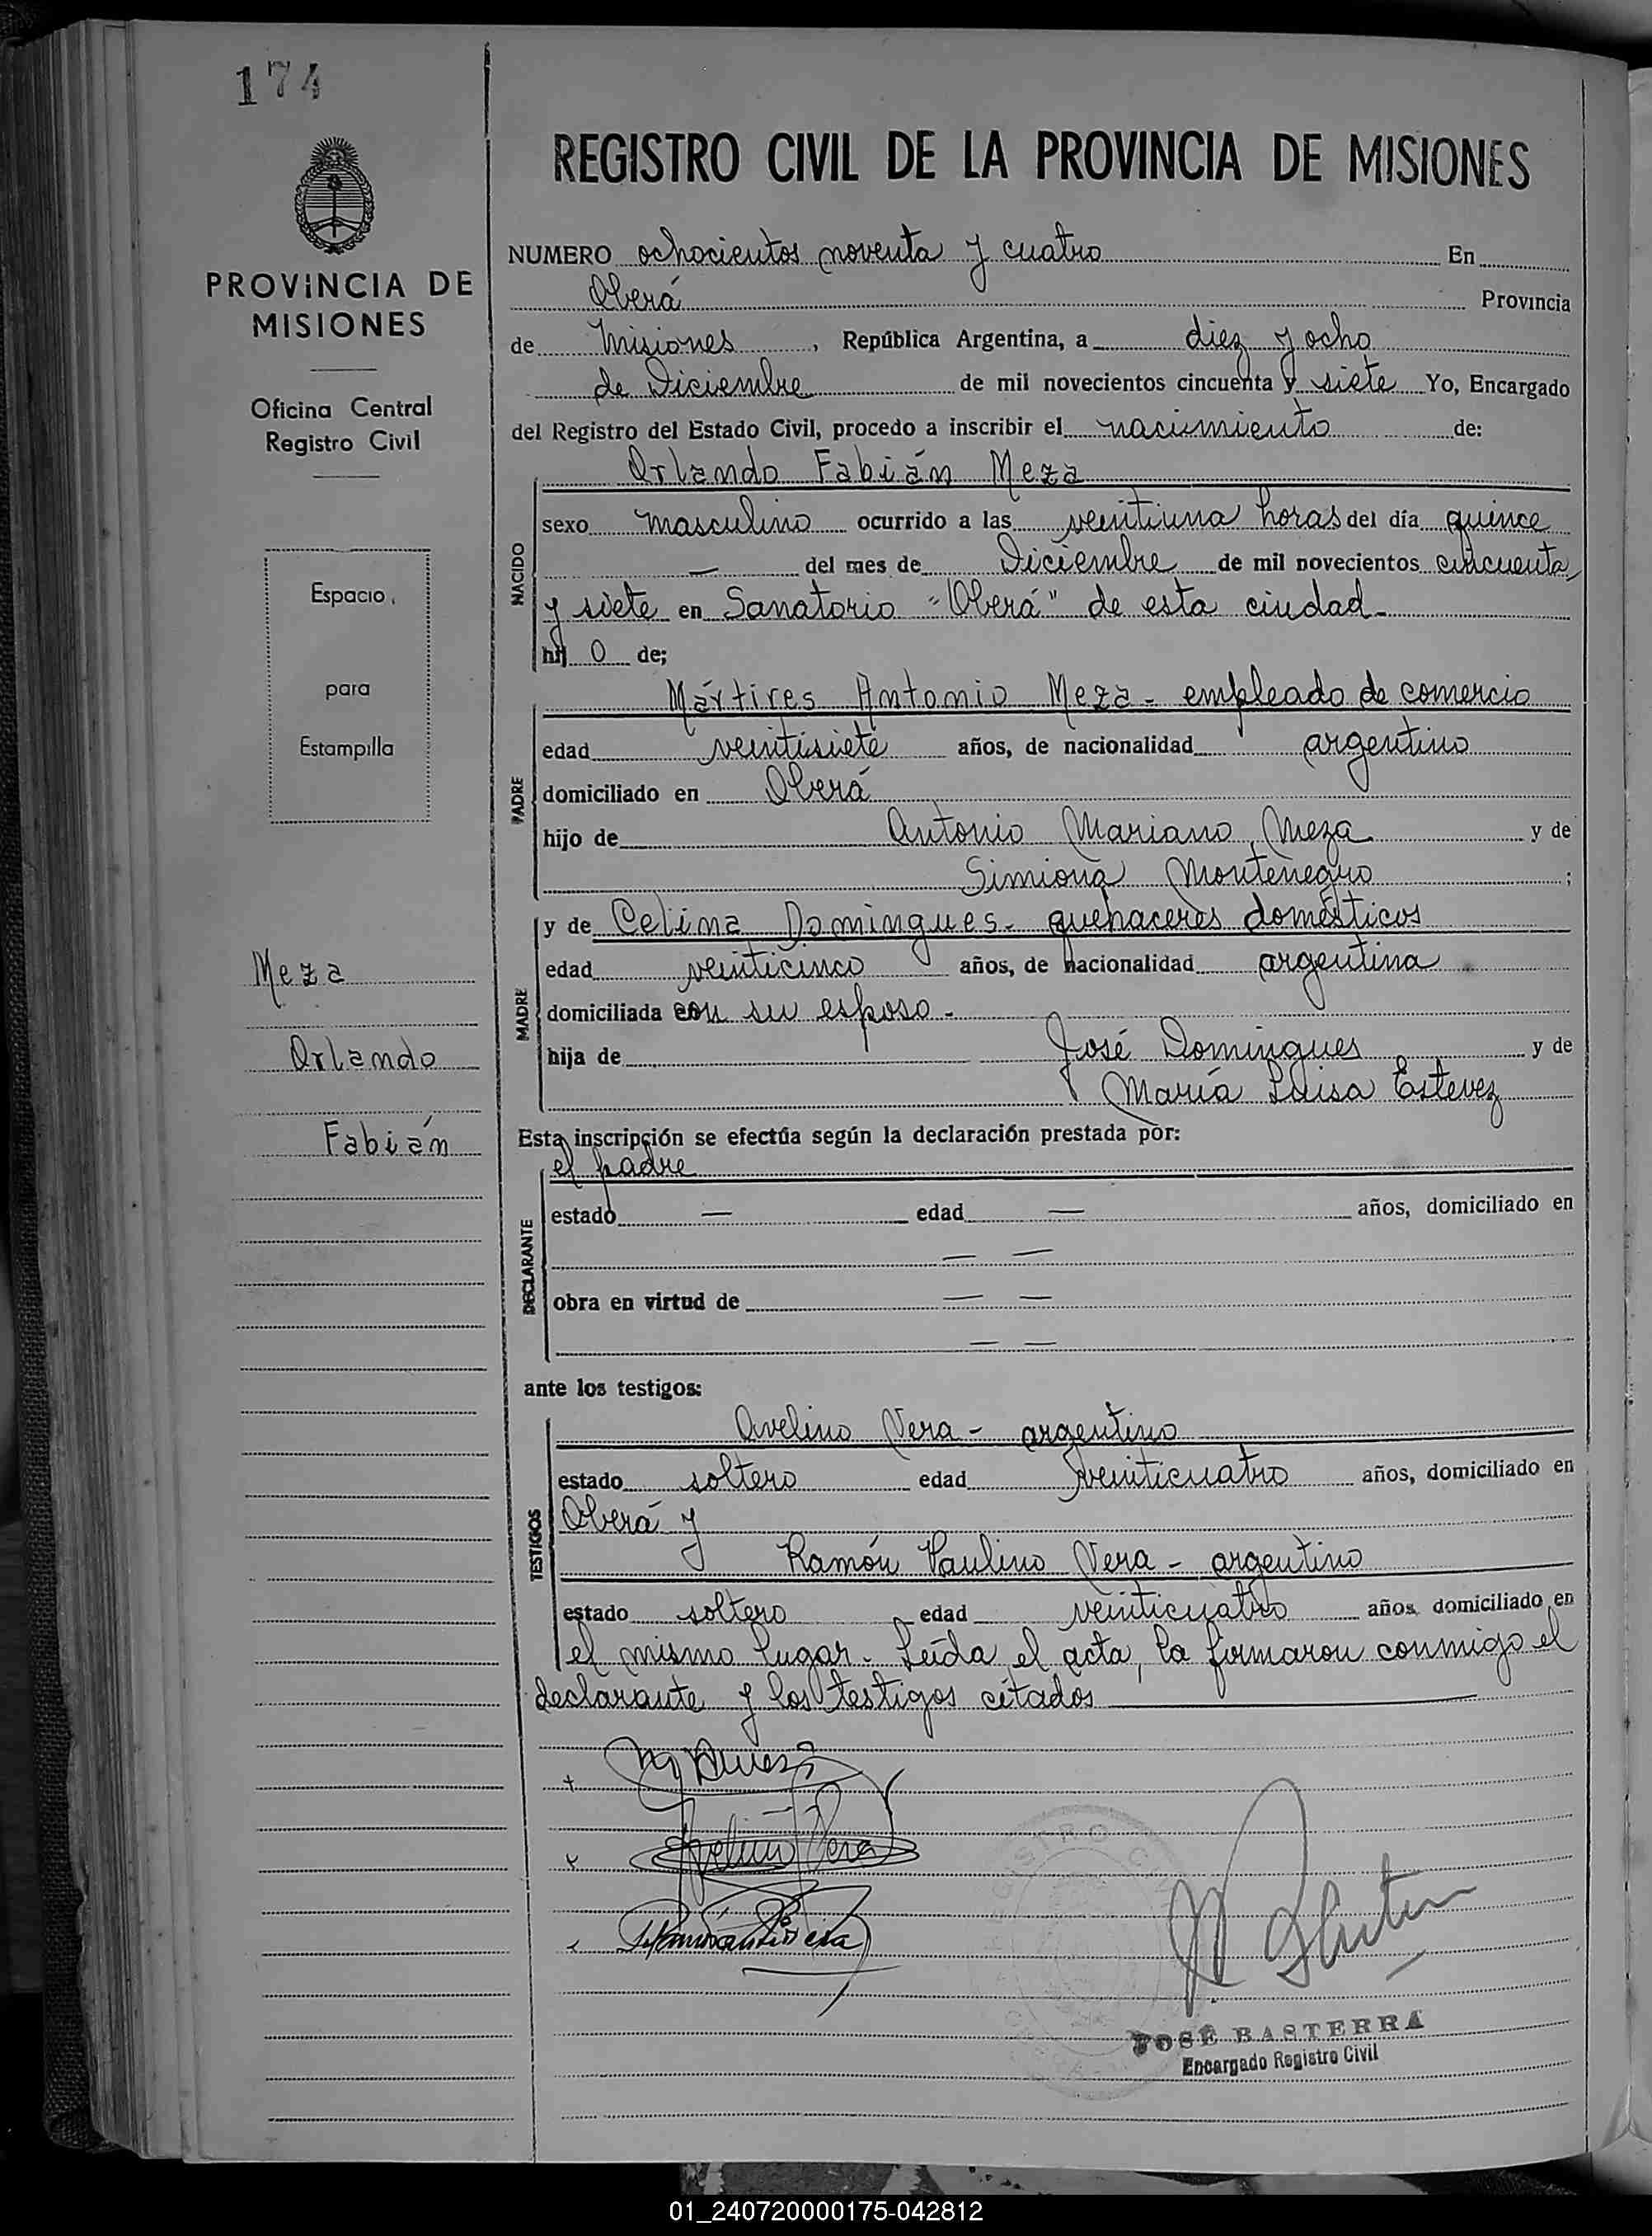 174
PROVINCIA DE
MISIONES
Oficina Central
Registro Civil
Espacio
para
Estampilla
Meza
Orlando
Fabián
REGISTRO CIVIL DE LA PROVINCIA DE MISIONES
NUMERO ochocientos noventa y cuatro En
Oberá Provincia
de Misiones, República Argentina, a diez y ocho
de Diciembre de mil novecientos cincuenta y siete Yo, Encargado
del Registro del Estado Civil, procedo a inscribir el nacimiento de:
NACIDO
Orlando Fabián Meza
sexo masculino ocurrido a las veintiuna horas del día quince
— del mes de Diciembre de mil novecientos cincuenta
y siete en Sanatorio "Oberá" de esta ciudad-
hij o de;
PADRE
Mártires Antonio Meza - empleado de comercio
edad veintisiete años, de nacionalidad argentino
domiciliado en Oberá
hijo de Antonio Mariano Meza y de
Simiona Montenegro ;
MADRE
y de Celina Domingues - quehaceres domésticos
edad veinticinco años, de nacionalidad argentina
domiciliada con su esposo -
hija de José Domingues y de
María Luisa Estevez
Esta inscripción se efectúa según la declaración prestada por:
DECLARANTE
el padre
estado — edad — años, domiciliado en
— —
obra en virtud de — —
— —
ante los testigos:
TESTIGOS
Avelino Vera - argentino
estado soltero edad veinticuatro años, domiciliado en
Oberá y
Ramón Paulino Vera - argentino
estado soltero edad veinticuatro años domiciliado en
el mismo lugar - Leída el acta, la firmaron conmigo el
declarante y los testigos citados
Avelino Vera
JOSÉ BASTERRA
Encargado Registro Civil
01_240720000175-042812